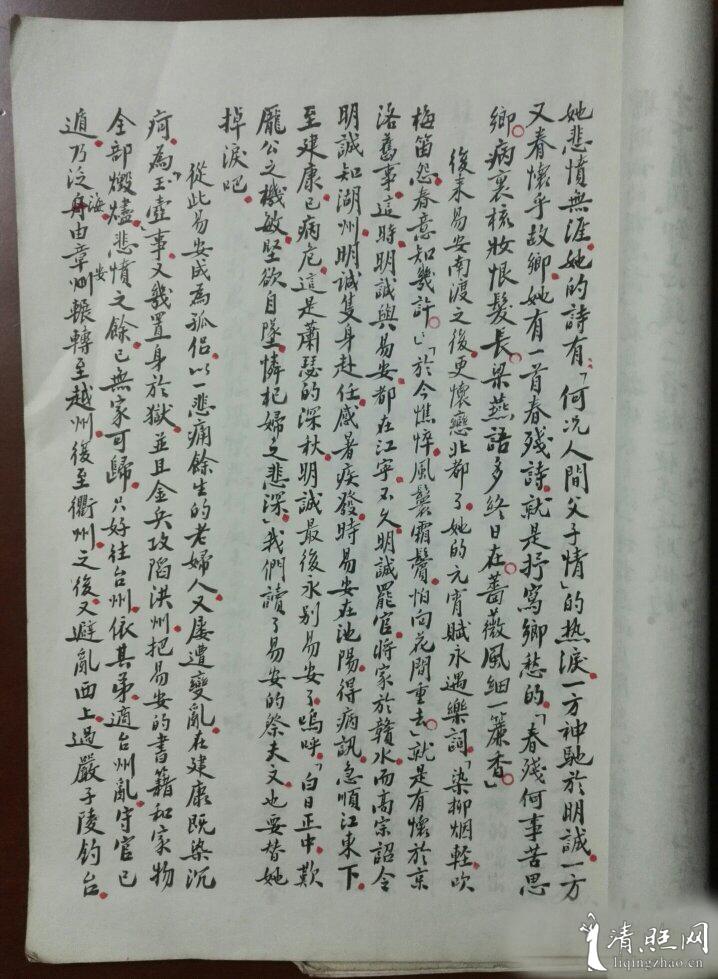 她悲憤無涯她的詩有：「何况人間父子情」的热淚一方神馳於明誠一方
又眷懷乎故鄉她有一首春殘詩就是抒寫鄉愁的「春殘何事苦思
鄉病裏梳妝恨髮長梁燕語多終日在薔薇風細一簾香」
後来易安南渡之後更懷戀北都了她的元宵賦永遇樂詞「染柳烟軽吹
梅笛怨春意知幾許」「於今憔悴風鬟霜鬢怕向花間重去」就是有懷於京
洛舊事這時明誠與易安都在江寧不久明誠罷官将家於贛水而高宗詔令
明誠知湖州明誠隻身赴任感暑疾發時易安在池陽得病訊急順江東下
至建康已病危這是蕭瑟的深秋明誠最後永别易安了嗚呼「白日正中歎
龐公之機敏堅欲自墜憐杞婦之悲深」我們讀了易安的祭夫文也要替她
掉淚吧
從此易安成為孤侣以一悲痛餘生的老婦人又屡遭變亂在建康既染沉
疴為「玉壺」事又幾置身於獄並且金兵攻陷洪州把易安的書籍和家物
全部燬燼悲憤之餘已無家可歸只好往台州依其弟適台州亂守官已
遁乃泛海舟由章安輾轉至越州後至衢州之後又避亂西上過嚴子陵釣台
清照网
liqingzhao.cn